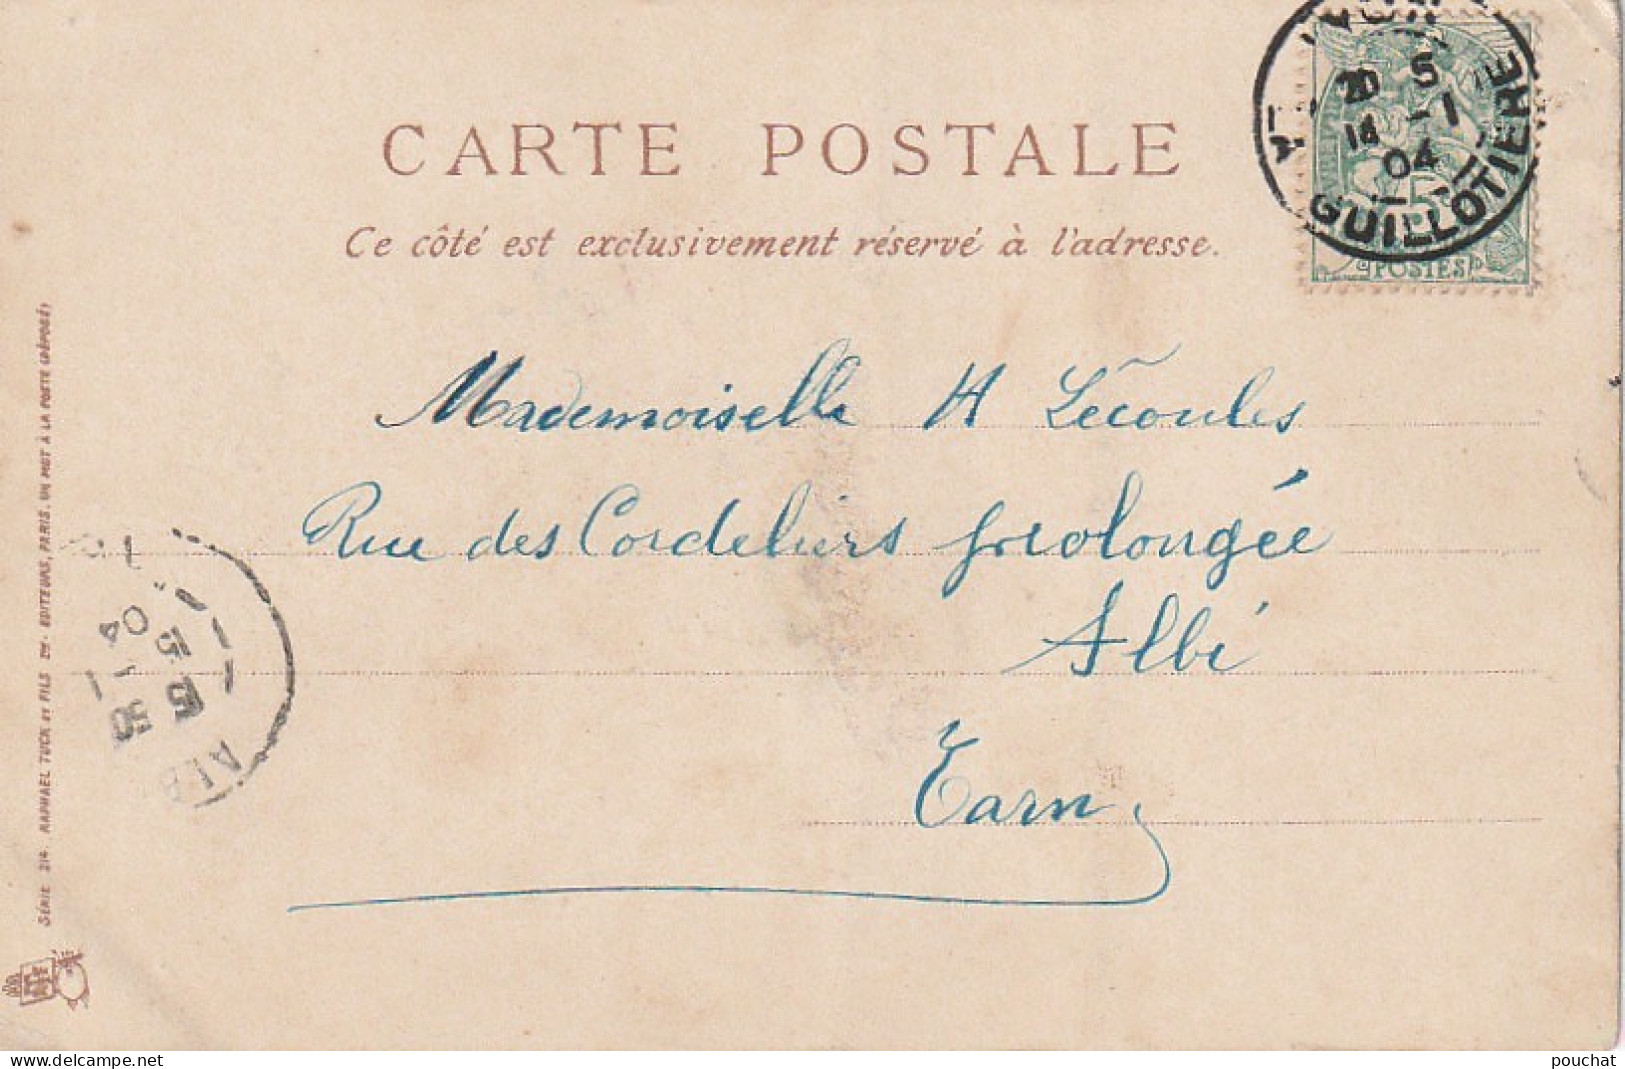 CARTE POSTALE
Ce côté est exclusivement réservé à l'adresse.
LYON
20 S
14 -1
04
GUILLOTIERE
POSTES
Mademoiselle H Lécoules
Rue des Cordeliers prolongée
Albi
Tarn
15 30
15 -1
04
ALB
SÉRIE 214. RAPHAEL TUCK ET FILS LTD. EDITEURS, PARIS. UN MOT À LA POSTE (DÉPOSÉ)
pouchat
www.delcampe.net